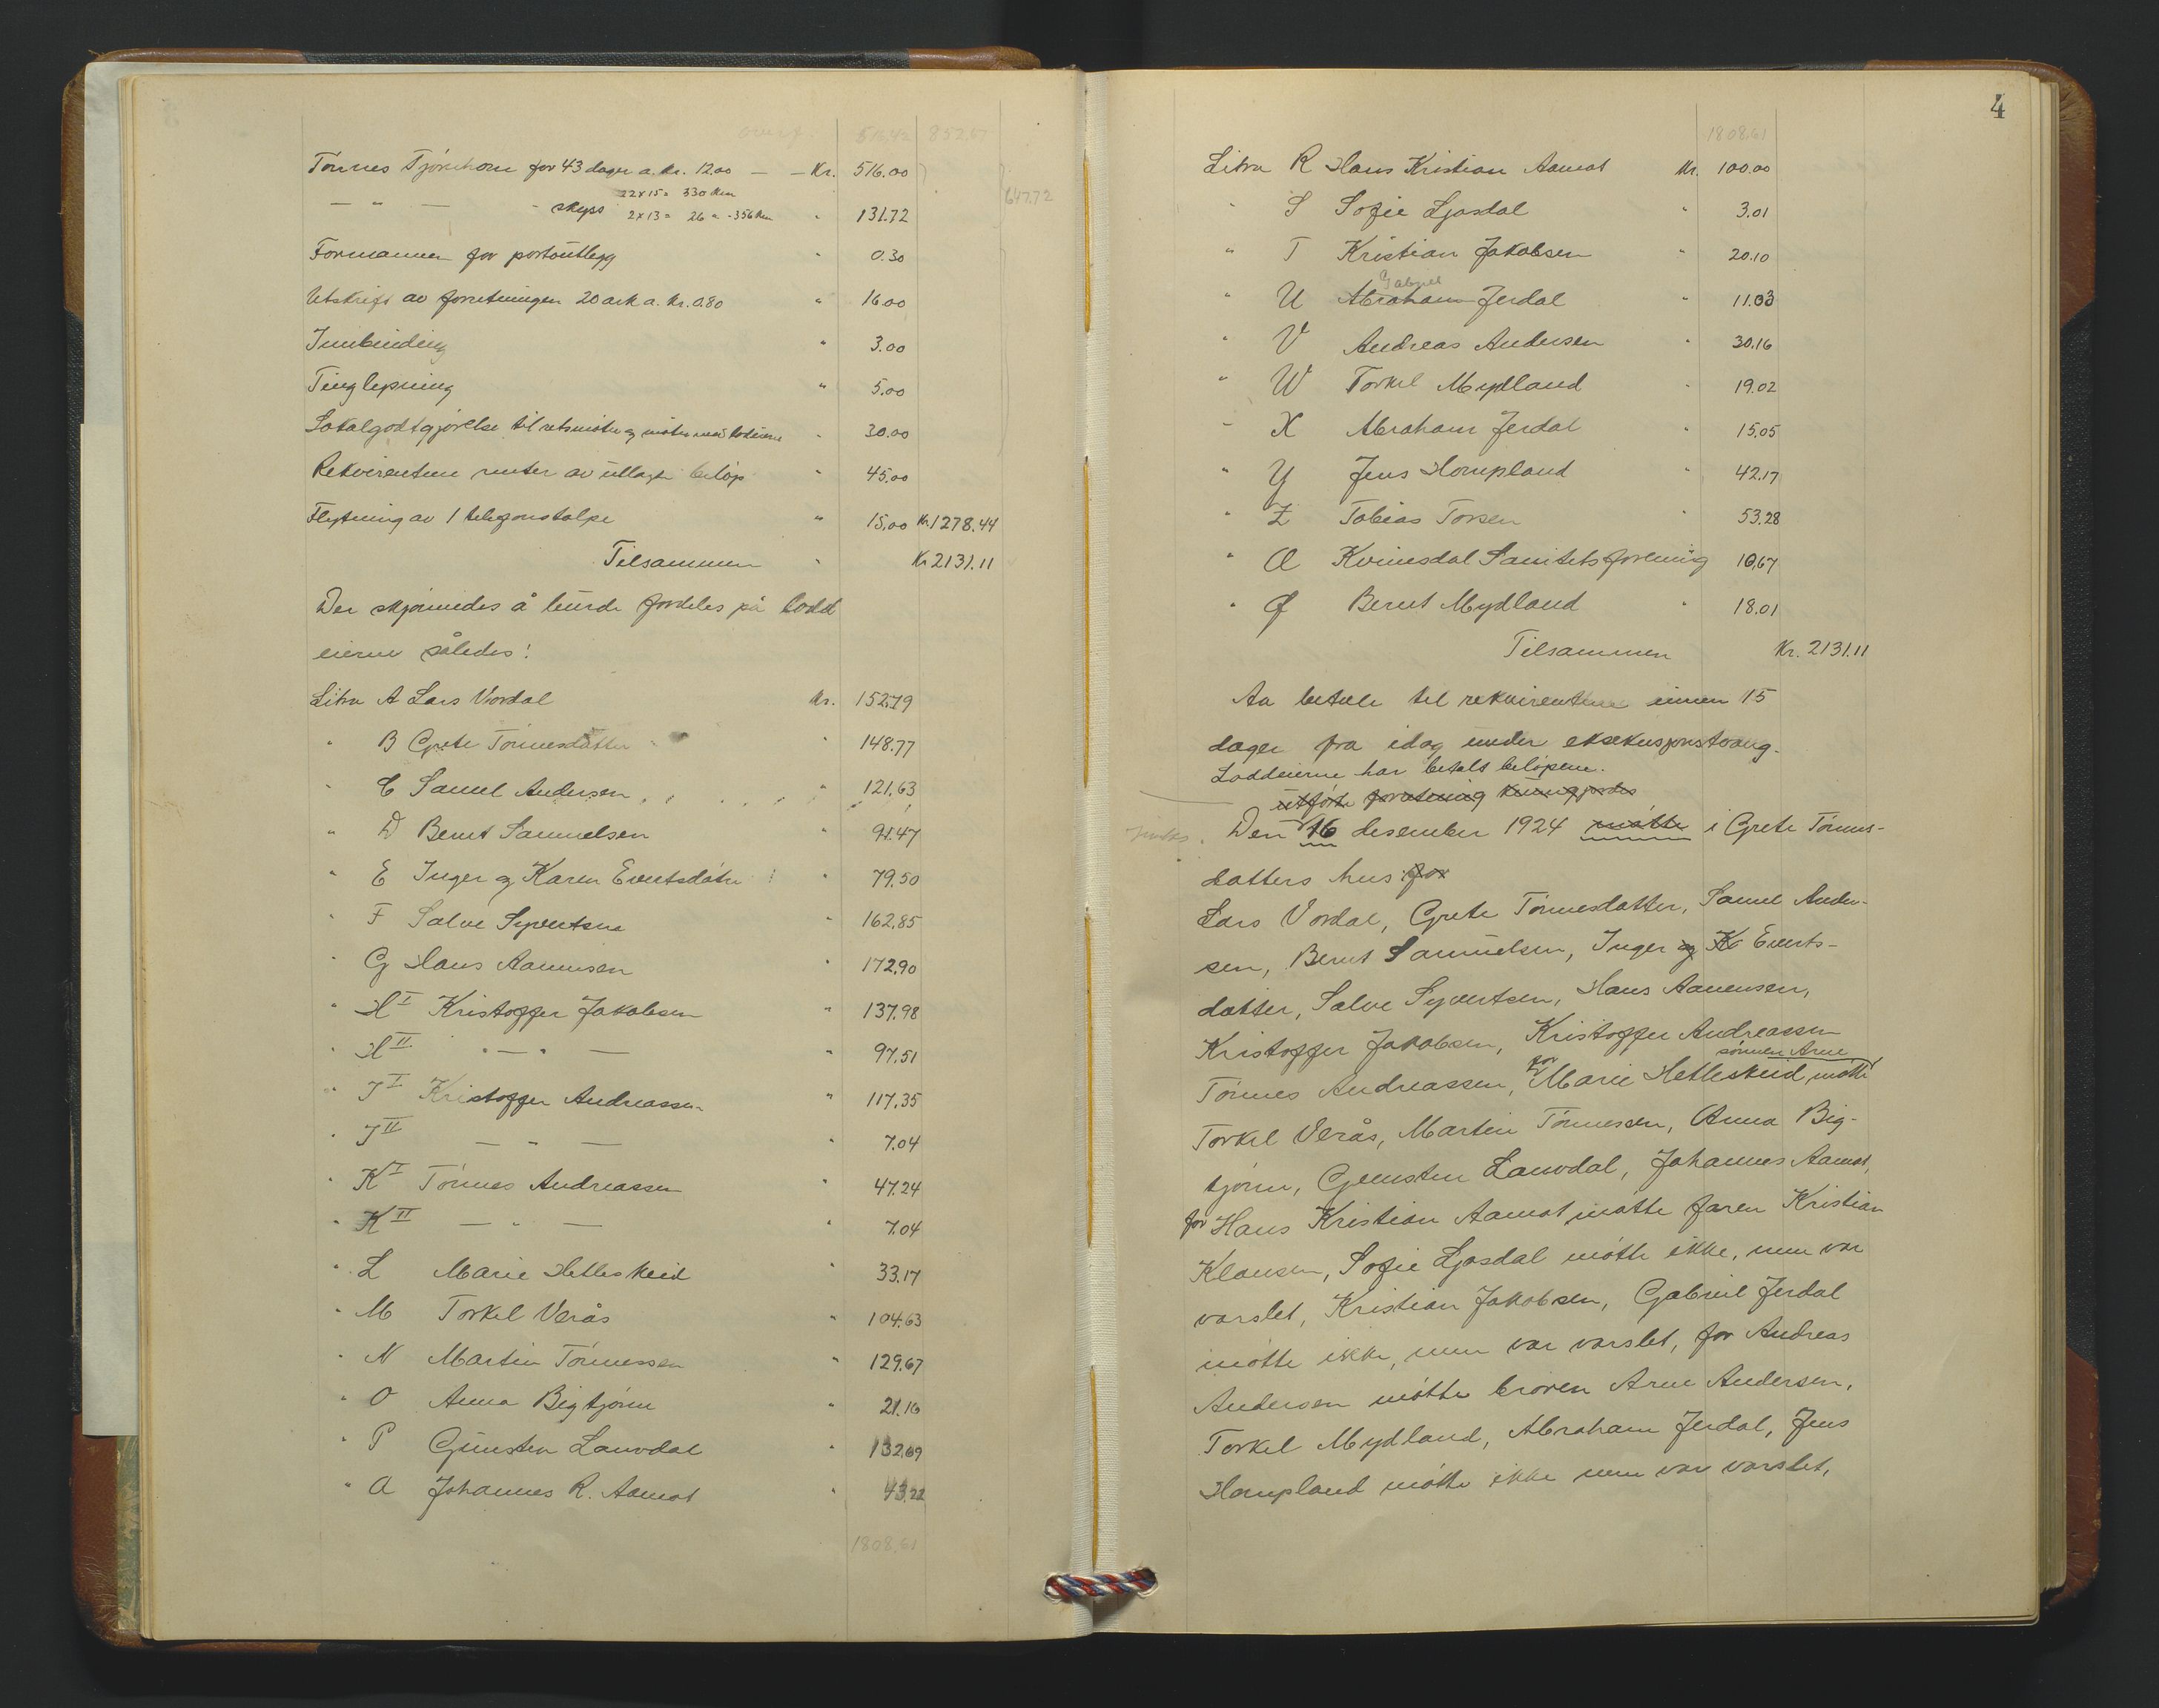 516.42 852.67
Tönnes Tjörnhom for 43 dager a. kr. 12.00 — — Kr. 516.00
22 x 15 = 330 km
— " — - skyss 2 x 13 = 26 " - 356 km " 131.72
647.72
Formannen for portoutlegg " 0.30
Utskrift av forretningen 20 ark a. kr. 0.80 " 16.00
Innbinding " 3.00
Tinglysning " 5.00
Lokalgodtgjörelse til retsmöter og möter med loddeierne " 30.00
Rekvirentene renter av utlagte belöp " 45.00
Flytning av 1 telefonstolpe " 15.00 Kr. 1278.44
Tilsammen " Kr 2131.11
Der skjönnedes å burde fordeles på lodd
eierne således:
Litra A Lars Vordal Kr. 152.79
" B Grete Tönnesdatter " 148.77
" C Samel Andersen " 121.63
" D Bernt Samuelsen " 91.47
" E Inger og Karen Evertsdatre " 79.50
" F Salve Syvertsen " 162.85
" G Hans Aanensen " 172.90
" H I Kristoffer Jakobsen " 137.98
" H II " — " — " 97.51
" J I Kristoffer Andreassen " 117.35
" J II — " — " 7.04
" K I Tönnes Andreassen " 47.24
" K II — " — " 7.04
" L Marie Hetleskeid " 33.17
" M Torkel Verås " 104.63
" N Martin Tönnessen " 129.67
" O Anna Bigtjönn " 21.16
" P Gunsten Lauvdal " 132.69
" Q Johannes R. Aamot " 43.22
1808.61
4
1808.61
Litra R Hans Kristian Aamot Kr. 100.00
" S Sofie Ljosdal " 3.01
" T Kristian Jakobsen " 20.10
Gabriel
" U Abraham Jerdal " 11.03
" V Andreas Andersen " 30.16
" W Torkel Mydland " 19.02
" X Abraham Jerdal " 15.05
" Y Jens Hompland " 42.17
" Z Tobias Torsen " 53.28
" Q Kvinesdal Sanitetsforening 10.67
" Ø Bernt Mydland " 18.01
Tilsammen Kr. 2131.11
Aa betale til rekvirentene innen 15
dager fra idag under eksekusjonstvang.
Loddeierne har betalt belöpene.
utförte forretning kunngjordes
Den 16 desember 1924 mötte i Grete Tönnes-
datters hus for
Lars Vordal, Grete Tönnesdatter, Samel Ander-
sen, Bernt Samuelsen, Inger og K Everts-
datter, Salve Syvertsen, Hans Aanensen,
Kristoffer Jakobsen, Kristoffer Andreassen
sönnen Arne
Tönnes Andreassen, for Marie Hetleskeid mötte
Torkel Verås, Martin Tönnessen, Anna Big-
tjönn, Gunsten Lauvdal, Johannes Aamot,
for Hans Kristian Aamot mötte faren Kristian
Klausen, Sofie Ljosdal mötte ikke, men var
varslet, Kristian Jakobsen, Gabriel Jerdal
mötte ikke, men var varslet, for Andreas
Andersen mötte broren Arne Andersen,
Torkel Mydland, Abraham Jerdal, Jens
Hompland mötte ikke men var varslet,